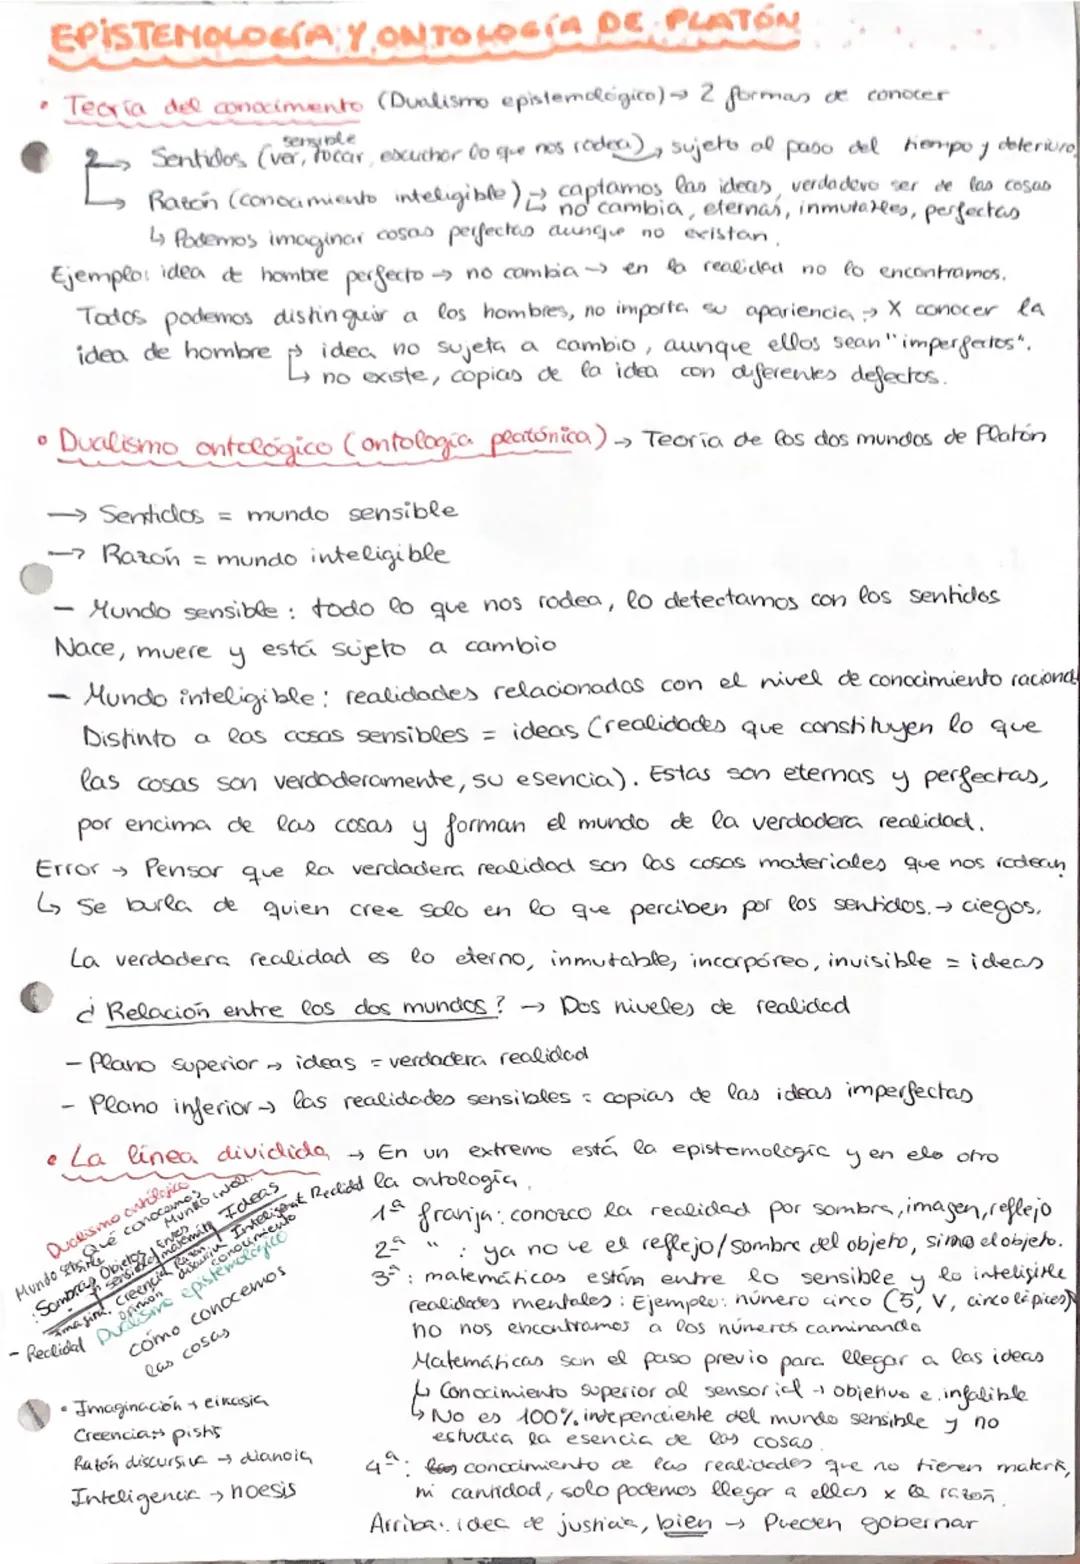 EPISTEMOLOGÍA Y ONTOLOGÍA DE PLATÓN
• Teoría del conocimiento (Dualismo epistemológico) → 2 formas de conocer
sensible
2 → Sentidos (ver, tocar, escuchar lo que nos rodea), sujeto al paso del tiempo y deterioro
→ Razón (conocimiento inteligible) → captamos las ideas, verdadero ser de las cosas
↳ no cambia, eternas, inmutables, perfectas
↳ Podemos imaginar cosas perfectas aunque no existan.
Ejemplo: idea de hombre perfecto → no cambia → en la realidad no lo encontramos.
Todos podemos distinguir a los hombres, no importa su apariencia → X conocer la
idea de hombre → idea no sujeta a cambio, aunque ellos sean "imperfectos".
↳ no existe, copias de la idea con diferentes defectos.
• Dualismo ontológico (ontología platónica) → Teoría de los dos mundos de Platón
→ Sentidos = mundo sensible
→ Razón = mundo inteligible
- Mundo sensible: todo lo que nos rodea, lo detectamos con los sentidos
Nace, muere y está sujeto a cambio
- Mundo inteligible: realidades relacionadas con el nivel de conocimiento racional
Distinto a las cosas sensibles = ideas (realidades que constituyen lo que
las cosas son verdaderamente, su esencia). Estas son eternas y perfectas,
por encima de las cosas y forman el mundo de la verdadera realidad.
Error → Pensar que la verdadera realidad son las cosas materiales que nos rodean
↳ Se burla de quien cree solo en lo que perciben por los sentidos. → ciegos.
La verdadera realidad es lo eterno, inmutable, incorpóreo, invisible = ideas
¿Relación entre los dos mundos? → Dos niveles de realidad
- Plano superior → ideas = verdadera realidad
- Plano inferior → las realidades sensibles = copias de las ideas imperfectas
• La línea dividida → En un extremo está la epistemología y en elo otro
la ontología.
Dualismo ontológico
Qué conocemos
Mundo sensible Mundo intel.
Sombras Objetos sensibles Entes matemáticos Ideas + Realidad
Imagin. Creencia Razón discursiva Inteligencia
opinión conocimiento
- Realidad Dualismo epistemológico
cómo conocemos
las cosas
1ª franja: conozco la realidad por sombra, imagen, reflejo
2ª " : ya no ve el reflejo/sombra del objeto, sino el objeto.
3ª: matemáticas están entre lo sensible y lo inteligible
realidades mentales: Ejemplo: número cinco (5, V, cinco lápices)
no nos encontramos a los números caminando
Matemáticas son el paso previo para llegar a las ideas
↳ Conocimiento superior al sensorial → objetivo e infalible
↳ No es 100% independiente del mundo sensible y no
estudia la esencia de las cosas.
4ª: conocimiento de las realidades que no tienen materia,
ni cantidad, solo podemos llegar a ellas x la razón.
Arriba: idea de justicia, bien → Pueden gobernar
• Imaginación → eikasia
Creencia → pistis
Razón discursiva → dianoia
Inteligencia → noesis